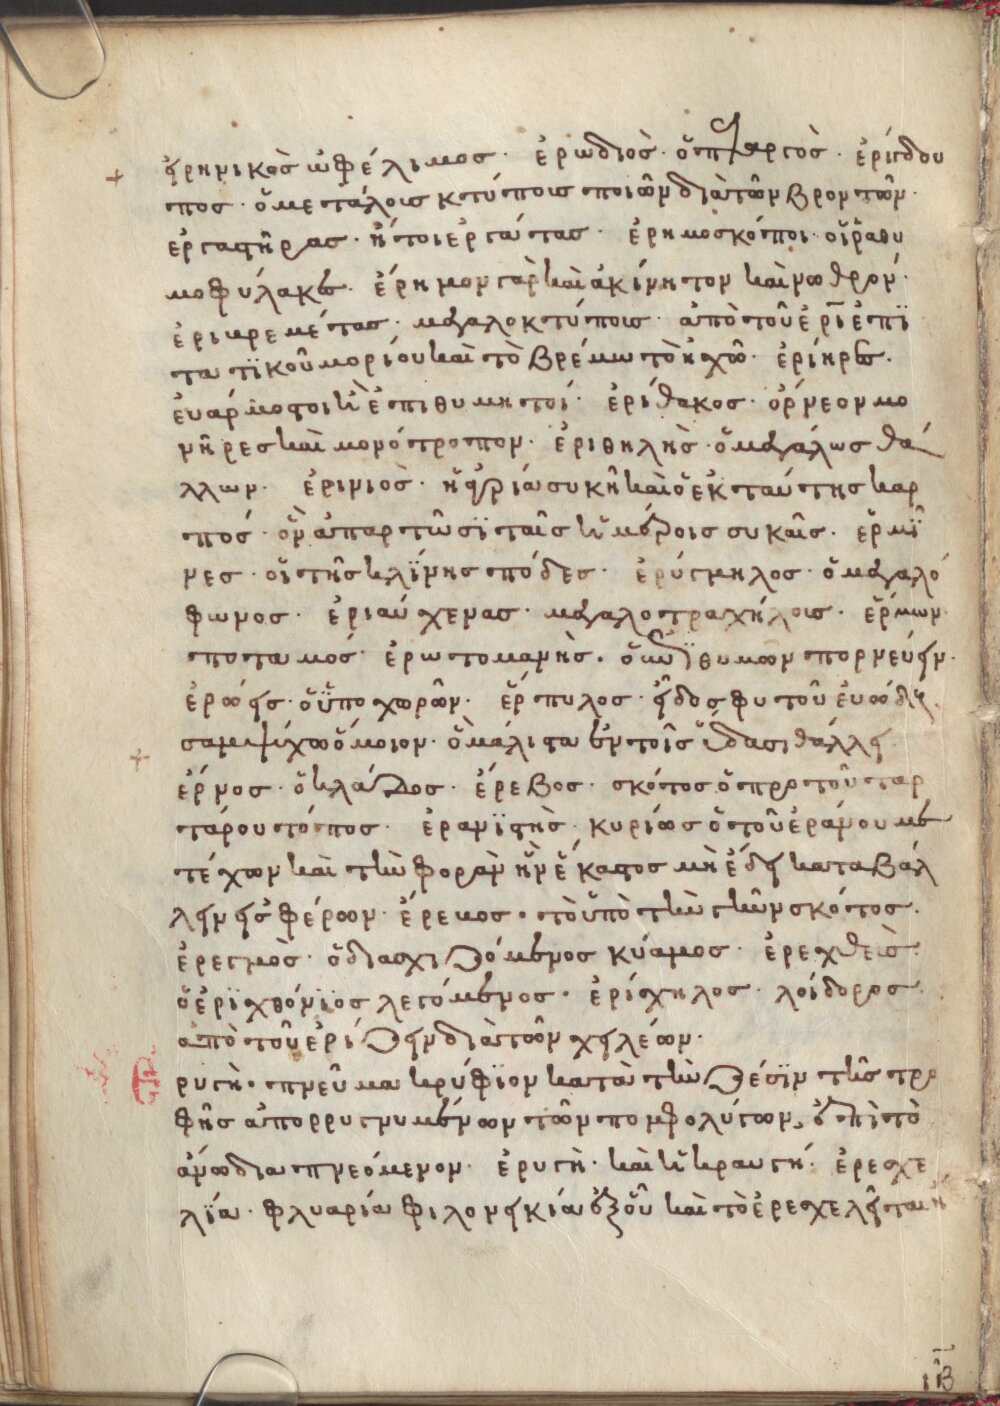 εἰρηνικὸς ὠφέλιμος · ἐρωδιὸς · ὁ πελαργὸς · ἐρίγδου
πος · ὁ μεγάλοις κτύποις ποιῶν διὰ τῶν βροντῶν ·
ἐργαστῆρας · ἤτοι ἐργάτας · ἐρημοσκόποι · οἱ
μοφύλακες · ἔρημον γὰρ καὶ ἀκίνητον καὶ νωθρόν ·
ἐριβρεμέτας · μεγαλοκτύποις · ἀπὸ τοῦ ἐρῖ ἐπϊ
τατϊκοῦ μορίου καὶ τὸ βρέμω τὸ ἠχῶ · ἐρίηρες ·
εὐάρμοστοι καὶ ἐπιθυμητοί · ἐρίθακος · ὄρνεον μο
νῆρες καὶ μονότροπον · ἐριθηλὴς · ὁ μεγάλως θά
λλων · ἐρινιὸς · ἡ ἀγρία συκῆ καὶ ὁ ἐκ ταύτης καρ
πός · ὃν ἀπαρτῶσϊ ταῖς ἡμέροις συκαῖς · ἑρμῖ
νες · οἱ τῆς κλϊνης πόδες · ἐρύγμηλος · ὁ μεγαλό
φωνος · ἐριαύχενας · μεγαλοτραχήλοις · ἕρμων
ποταμός · ἐρωτομανὴς · ὁ ἐπϊθυμῶν πορνεύειν ·
ἐρωεῖς · ὁ ὑποχωρῶν · ἕρπυλος · εἶδος φυτοῦ εὐώδες
σαμψύχω ὅμοιον · ὃ μάλιστα ἐν τοῖς ὕδασι θάλλει
ἔρνος · ὁ κλάδος · ἔρεβος · σκότος ὁ πρὸ τοῦ ταρ
τάρου τόπος · ἐρανϊστὴς · κυρίως ὁ τοῦ ἐράνου με
τέχων καὶ τὴν φορὰν ἣν ἕκαστος μὴ ἔδει καταβάλ
λειν εἰσφέρων · ἔρεβος · τὸ ὑπὸ τὴν γῆν σκότος ·
ἐρεγμὸς · ὁ διασχιζόμενος κύαμος · ἐρεχθεὺς
ὁ ἐρϊχθόνϊος λεγόμενος · ἐρίσχηλος · λοίδορος ·
ἀπὸ τοῦ ἐρίζειν διὰ τῶν χειλέων ·
Ερυγὴ · πνεῦμα κρύφϊον κατὰ τὴν ζέσϊν τῆς τρο
φῆς ἀπορρυγνυμένων τῶν πομφολύγων, ἐπὶ τὸ
ἄνω διαπνεόμενον · ἐρυγὴ · καὶ ἡ κραυγή · ἐρεσχε
λϊα · φλυαρία φιλονεικία ἐξ οὗ καὶ τὸ ἐρεσχελεῖται
ιβ